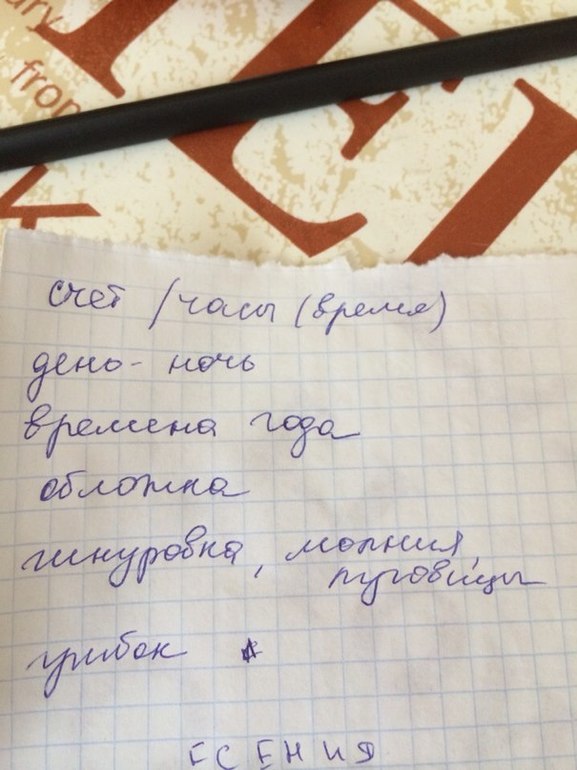 ury
from
счет / часы (время)
день - ночь
времена года
обложка
шнуровка, молния,
пуговицы
грибок
ЕСЕНИЯ